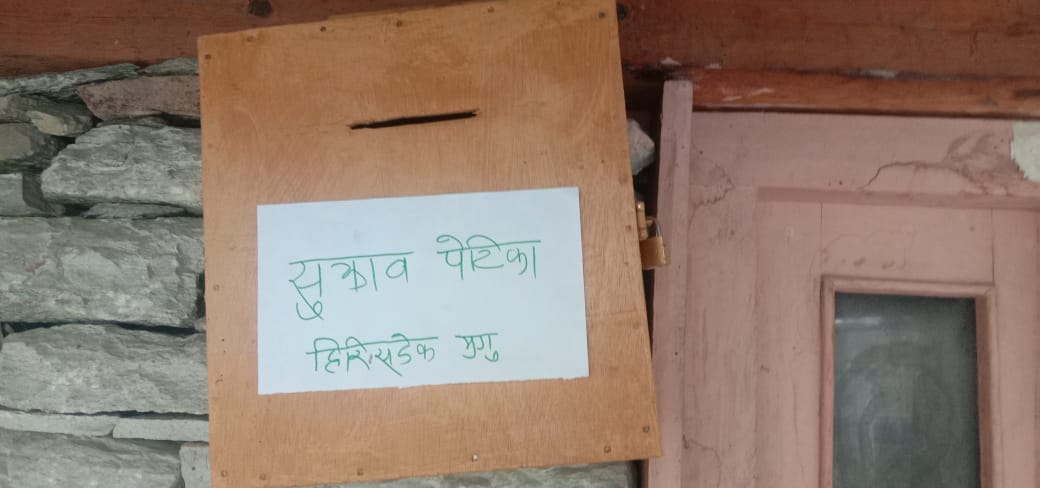 सुझाव पेटिका
हिरिसडेक मुगु